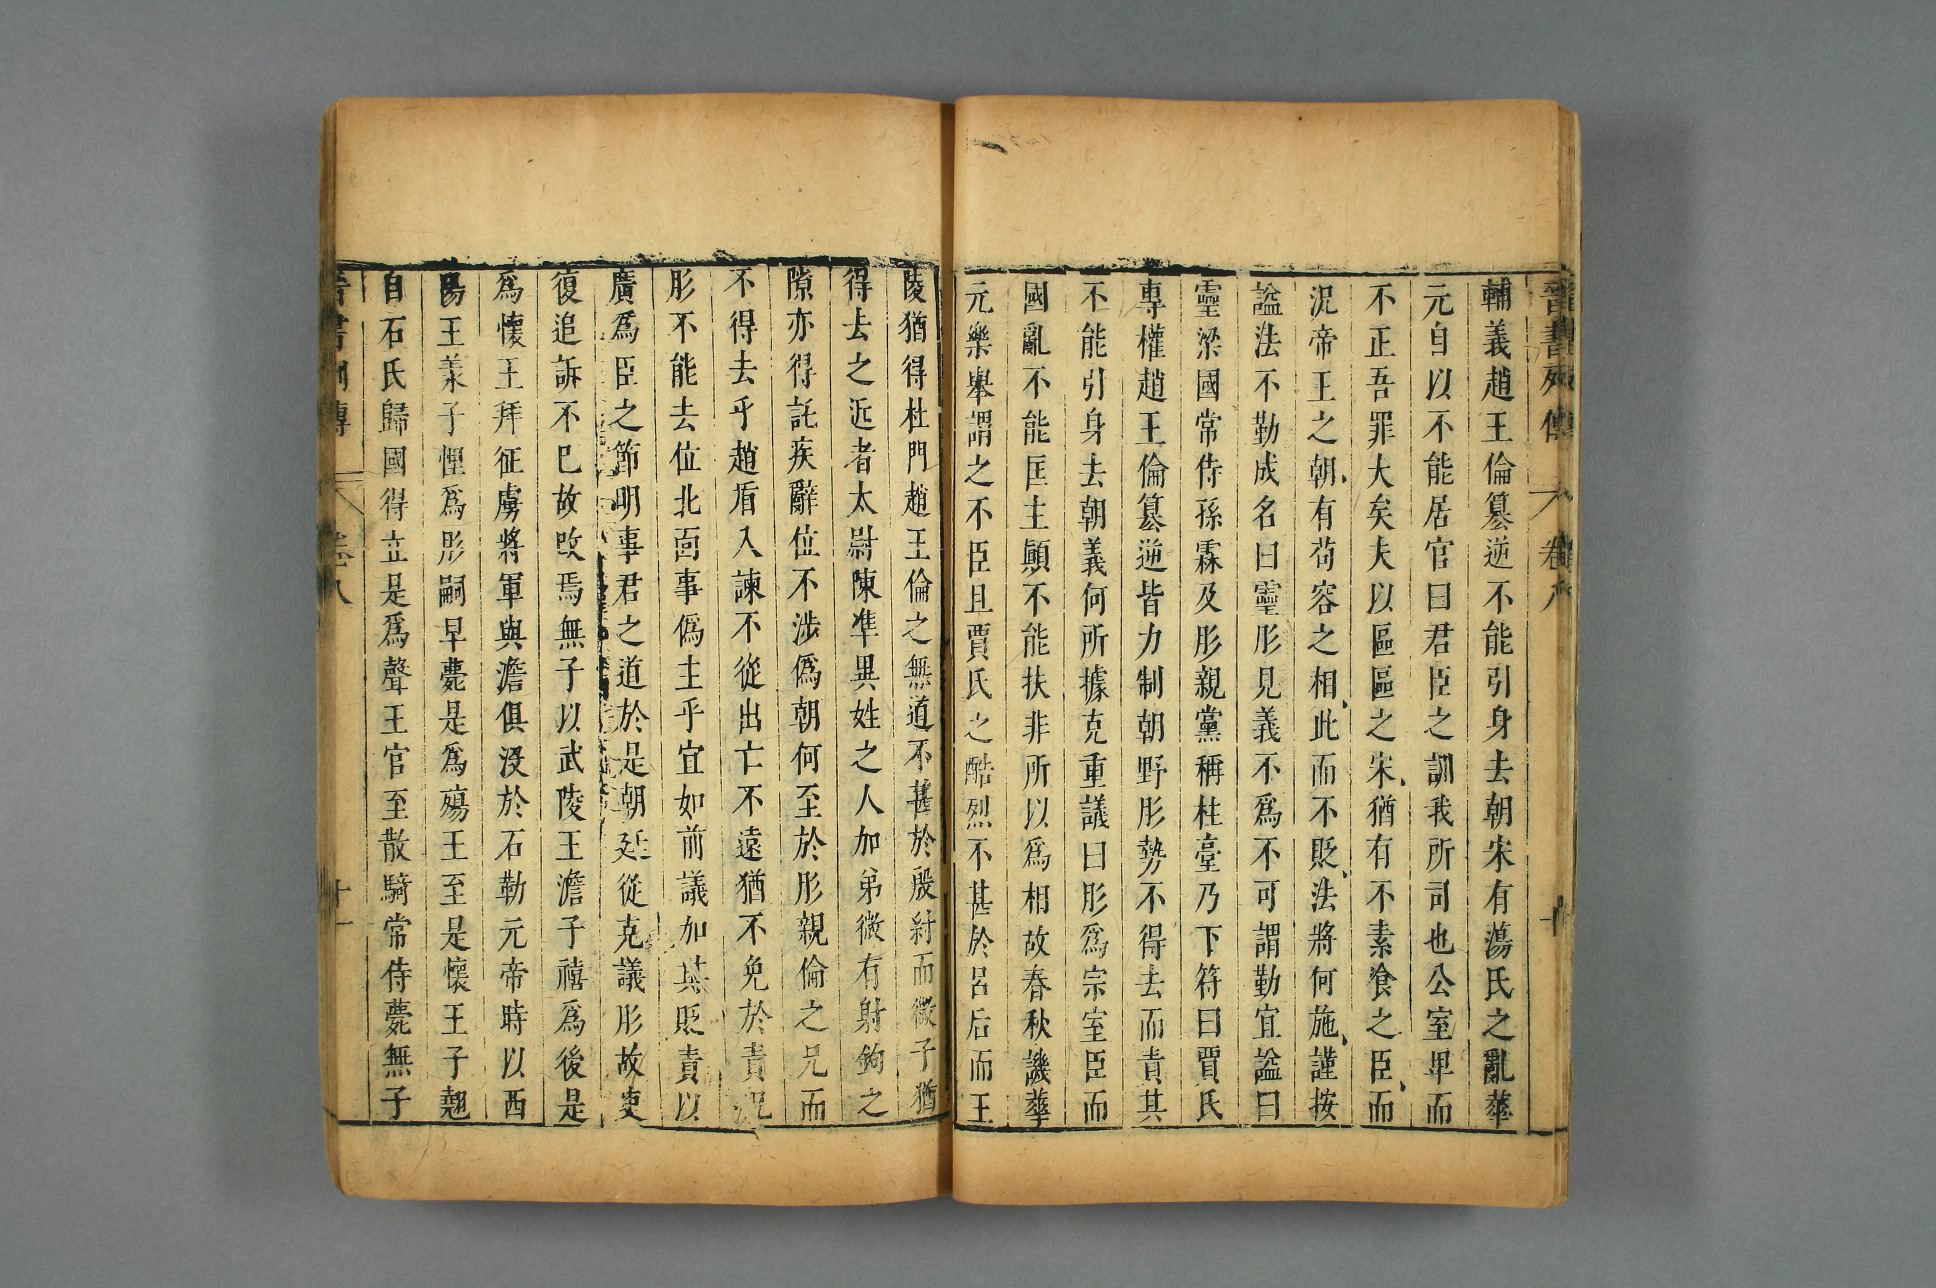 晉書列傳 卷八 十
輔義趙王倫篡逆不能引身去朝宋有蕩氏之亂華
元自以不能居官曰君臣之訓我所司也公室卑而
不正吾罪大矣夫以區區之宋猶有不素飡之臣而
況帝王之朝有苟容之相此而不貶法將何施謹按
諡法不勤成名曰靈肜見義不爲不可謂勤宜諡曰
靈梁國常侍孫霖及肜親黨稱枉臺乃下符曰賈氏
專權趙王倫篡逆皆力制朝野肜勢不得去而責其
不能引身去朝義何所據克重議曰肜爲宗室臣而
國亂不能匡主顚不能扶非所以爲相故春秋譏華
元樂舉謂之不臣且賈氏之酷烈不甚於呂后而王
陵猶得杜門趙王倫之無道不甚於殷紂而微子猶
得去之近者太尉陳準異姓之人加弟徽有射鉤之
隙亦得託疾辭位不涉僞朝何至於肜親倫之兄而
不得去乎趙盾入諫不從出亡不遠猶不免於責況
肜不能去位北面事僞主乎宜如前議加其貶責以
廣爲臣之節明事君之道於是朝廷從克議肜故吏
復追訴不已故改焉無子以武陵王澹子禧爲後是
爲懷王拜征虜將軍與澹俱沒於石勒元帝時以西
陽王羕子悝爲肜嗣早薨是爲殤王至是懷王子翹
自石氏歸國得立是爲聲王官至散騎常侍薨無子
晉書列傳 卷八 十一